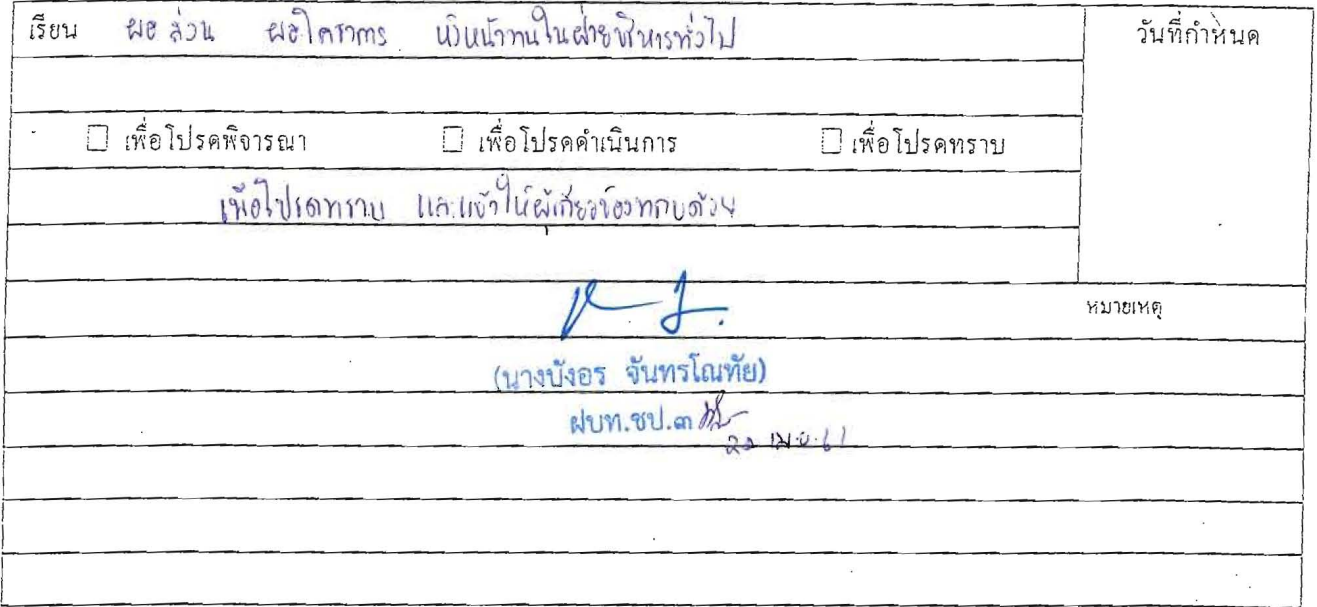 เรียน ผอ ส่วน ผอโครงการ หัวหน้างานในฝ่ายบริหารทั่วไป วันที่กำหนด
☐ เพื่อโปรดพิจารณา ☐ เพื่อโปรดดำเนินการ ☐ เพื่อโปรดทราบ
เพื่อโปรดทราบ และแจ้งให้ผู้เกี่ยวข้องทราบด้วย
หมายเหตุ
(นางบังอร จันทรโณทัย)
ฝบท.ชป.๓
เม.ย. 61